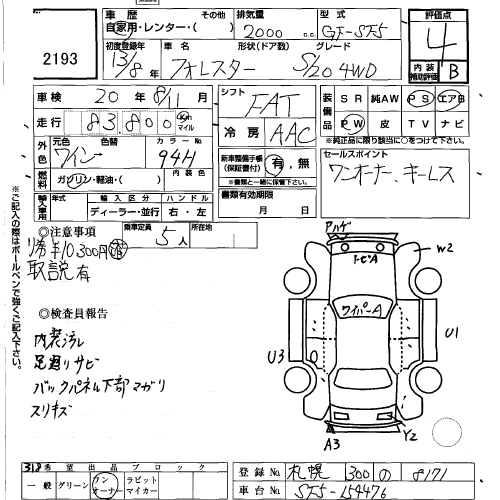 2193
車歴 その他
自家用・レンター・( )
排気量
2000
型式
GF-SF5
評価点
4
内装補助評価 B
初度登録年
13/8年
車名
フォレスター
形状(ドア数)
グレード
S/20 4WD
車検 20年 8/11月
シフト
FAT
装備品
SR 純AW PS エアB
PW 皮 TV ナビ
※純正品に限り該当に○をつけて下さい。
走行 83,800 km マイル
冷房 AAC
外色
元色 色替
ワイン
カラーNo.
94H
新車整備手帳(保証書付)
有・無
※書類と一緒に保管下さい。
セールスポイント
ワンオーナー、キーレス
燃料
ガソリン・軽油・( )
内装色
輸入車用
年式
輸入区分 ハンドル
ディーラー・並行 右・左
書類有効期限
月 日
◎注意事項
乗車定員 5人
所在地
取説有
※ご記入の際はボールペンで強くご記入下さい。
◎検査員報告
内装汚レ
足廻リサビ
バックパネル下部マガリ
スリキズ
アルゲ
トビA
W2
ワイパーA
U3
U1
A3
Y2
318 希望出品ブロック
一般 グリーン ワンオーナー ラビット マイカー
登録No. 札幌 300 の 8171
車台No. SF5-154476